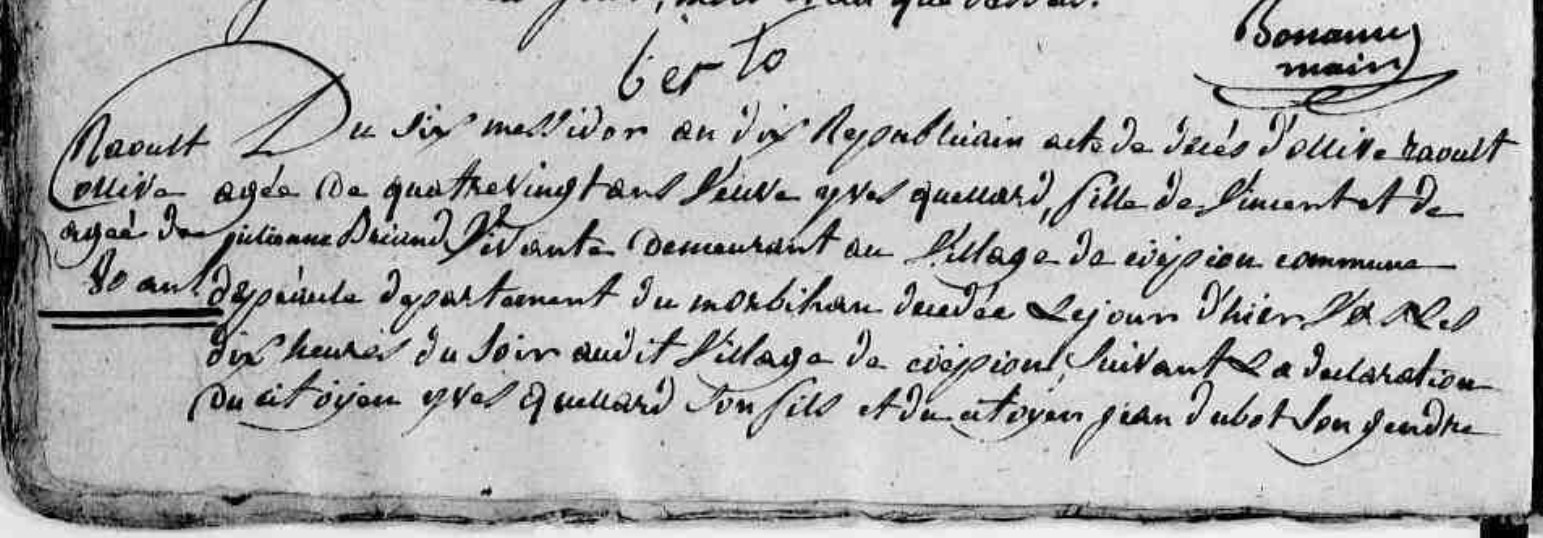 Bonamy
main
berto
Raoult
ollive
agée de
80 ans
Du six messidor an dix Republicain acte de décés d'ollive raoult
agée de quatrevingt ans veuve yves quellard, fille de vincent et de
julienne Briend vivante demeurant au village de coëpion commune
depéaule departement du morbihan decedée Lejour d'hier vers Les
dix heures du soir audit village de coëpion, suivant La declaration
Du citoyen yves quellard son fils et du citoyen jean dubot son gendre